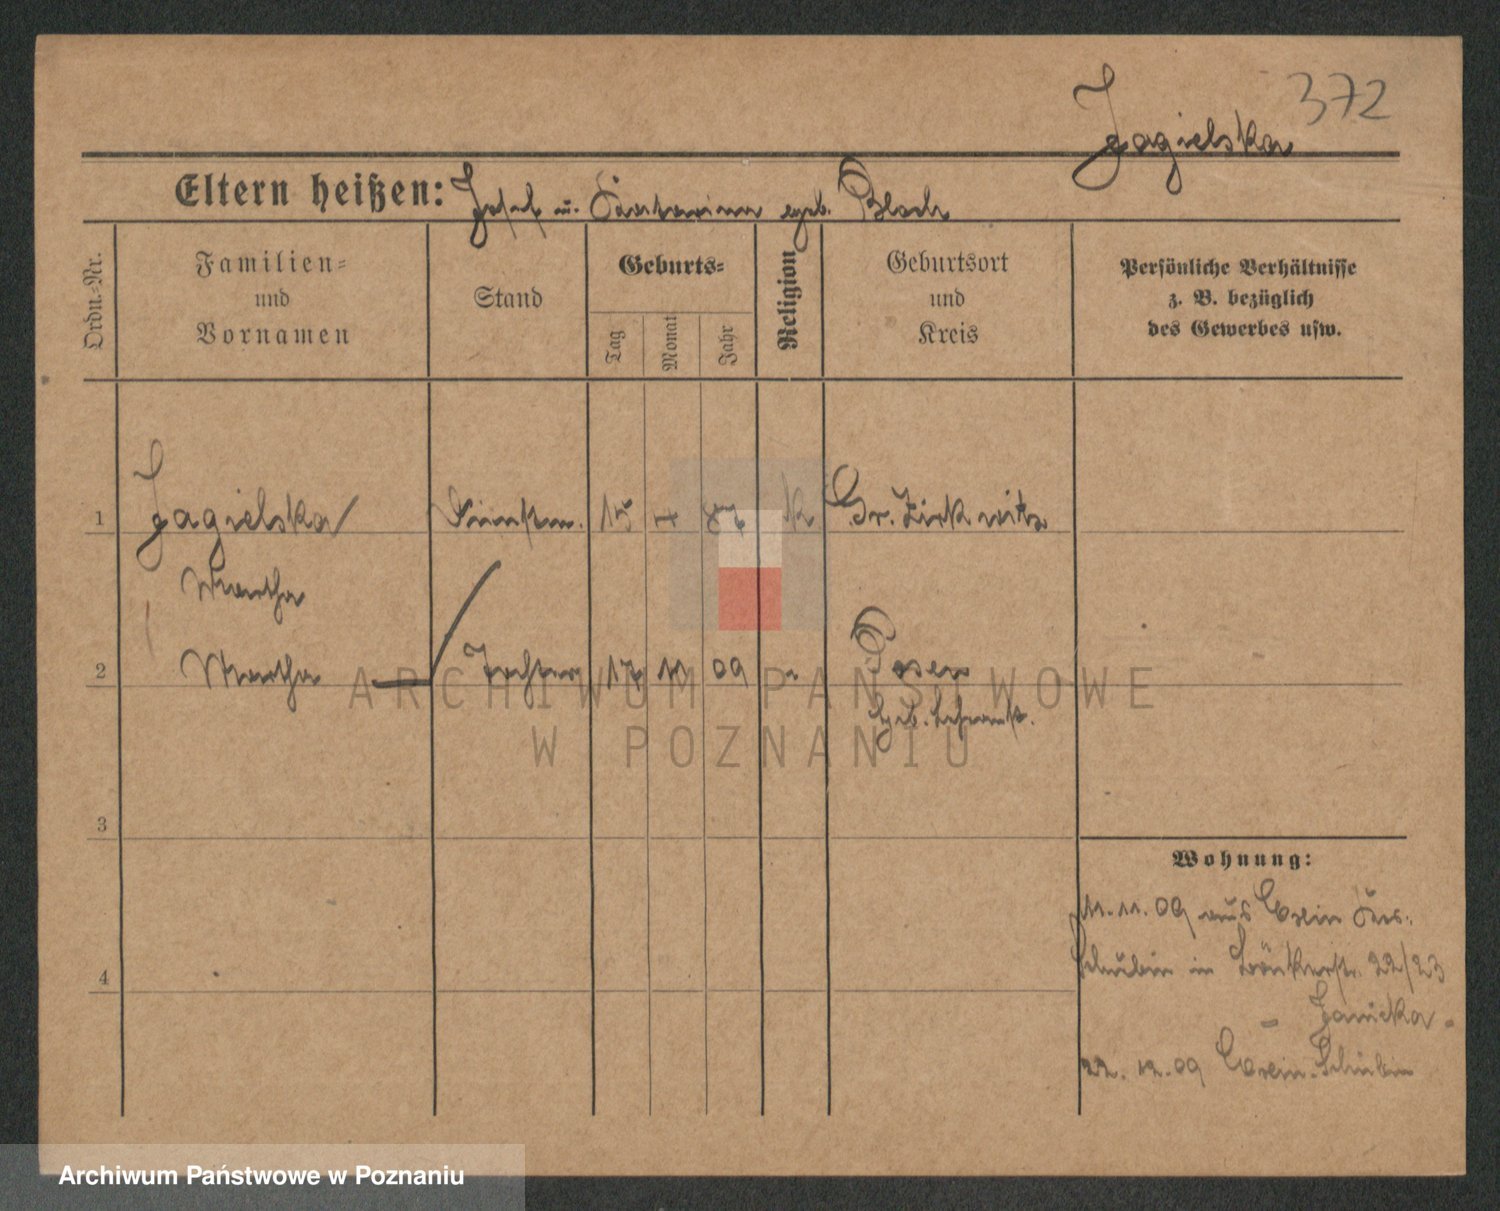 372
Jagielska
Eltern heißen: Josef u. Katarina geb. Bloch
Ordn.-Nr.
Familien-
und
Vornamen
Stand
Geburts-
Tag
Monat
Jahr
Religion
Geburtsort
und
Kreis
Persönliche Verhältnisse
z. B. bezüglich
des Gewerbes usw.
1 Jagielska 15 k Gr. Zirkwitz
Martha
2 Martha Tochter 17 11 09 Posen
Geb. Lehranst.
3
Wohnung:
11.11.09 aus Exin Krs.
Schubin in 22/23
4
- Janicka -
22.12.09 Exin-Schubin
ARCHIWUM PAŃSTWOWE
W POZNANIU
Archiwum Państwowe w Poznaniu